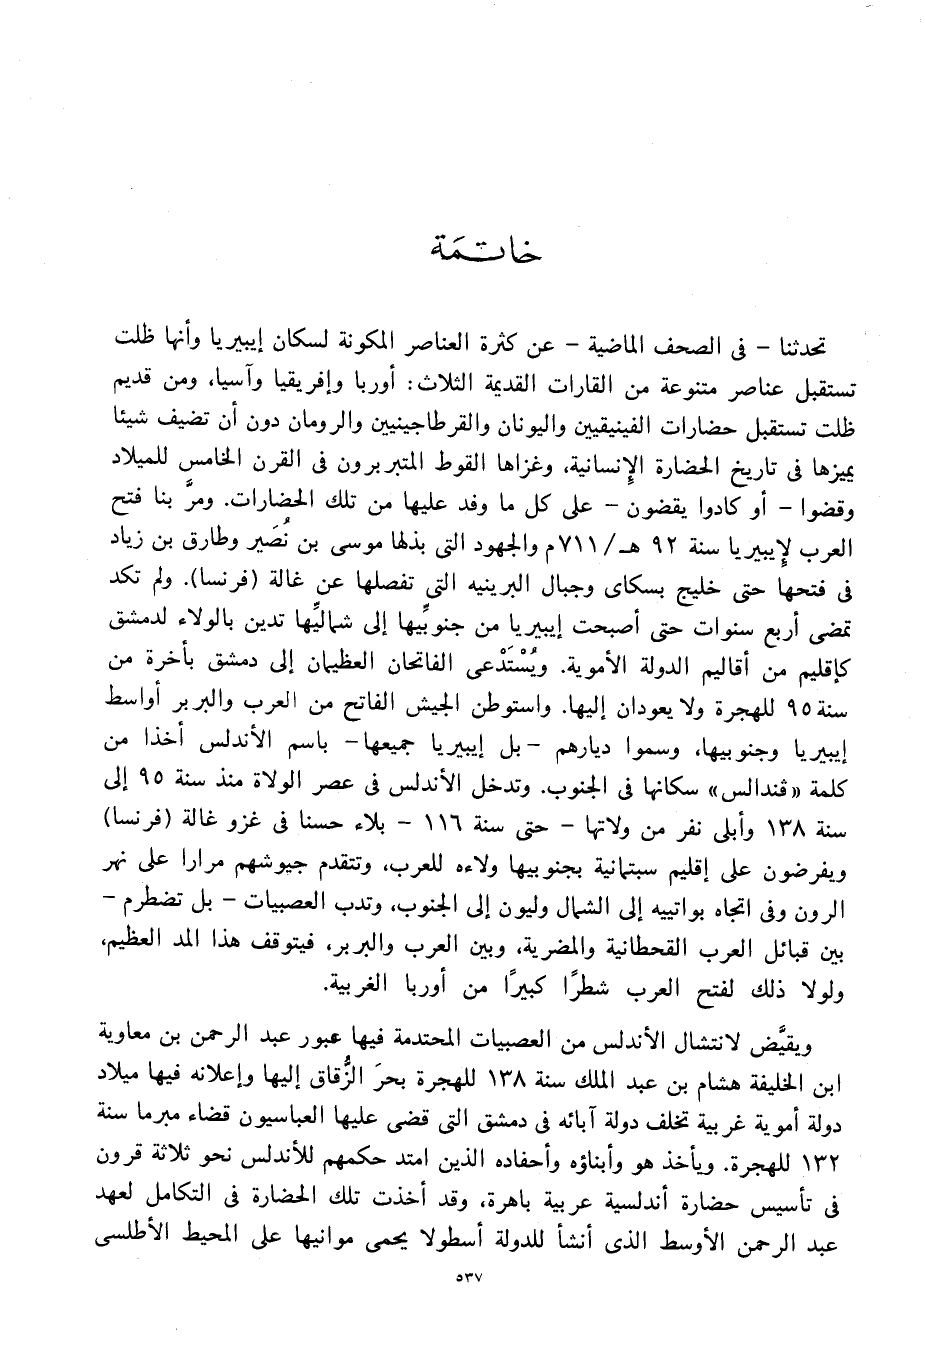 خاتمة
تحدثنا – فى الصحف الماضية – عن كثرة العناصر المكونة لسكان إيبيريا وأنها ظلت
تستقبل عناصر متنوعة من القارات القديمة الثلاث: أوربا وإفريقيا وآسيا، ومن قديم
ظلت تستقبل حضارات الفينيقيين واليونان والقرطاجينيين والرومان دون أن تضيف شيئا
يميزها فى تاريخ الحضارة الإنسانية، وغزاها القوط المتبربرون فى القرن الخامس للميلاد
وقضوا – أو كادوا يقضون – على كل ما وفد عليها من تلك الحضارات. ومرَّ بنا فتح
العرب لإيبيريا سنة ٩٢ هـ/٧١١م والجهود التى بذلها موسى بن نُصَير وطارق بن زياد
فى فتحها حتى خليج بسكاى وجبال البرينيه التى تفصلها عن غالة (فرنسا). ولم تكد
تمضى أربع سنوات حتى أصبحت إيبيريا من جنوبيِّها إلى شماليِّها تدين بالولاء لدمشق
كإقليم من أقاليم الدولة الأموية. ويُسْتَدْعى الفاتحان العظيمان إلى دمشق بأخرة من
سنة ٩٥ للهجرة ولا يعودان إليها. واستوطن الجيش الفاتح من العرب والبربر أواسط
إيبيريا وجنوبيها، وسموا ديارهم –بل إيبيريا جميعها– باسم الأندلس أخذا من
كلمة «ڤندالس» سكانها فى الجنوب. وتدخل الأندلس فى عصر الولاة منذ سنة ٩٥ إلى
سنة ١٣٨ وأبلى نفر من ولاتها – حتى سنة ١١٦ – بلاء حسنا فى غزو غالة (فرنسا)
ويفرضون على إقليم سبتمانية بجنوبيها ولاءه للعرب، وتتقدم جيوشهم مرارا على نهر
الرون وفى اتجاه بواتييه إلى الشمال وليون إلى الجنوب، وتدب العصبيات – بل تضطرم –
بين قبائل العرب القحطانية والمضرية، وبين العرب والبربر، فيتوقف هذا المد العظيم،
ولولا ذلك لفتح العرب شطرًا كبيرًا من أوربا الغربية.
ويقيَّض لانتشال الأندلس من العصبيات المحتدمة فيها عبور عبد الرحمن بن معاوية
ابن الخليفة هشام بن عبد الملك سنة ١٣٨ للهجرة بحرَ الزُّقاق إليها وإعلانه فيها ميلاد
دولة أموية غربية تخلف دولة آبائه فى دمشق التى قضى عليها العباسيون قضاء مبرما سنة
١٣٢ للهجرة. ويأخذ هو وأبناؤه وأحفاده الذين امتد حكمهم للأندلس نحو ثلاثة قرون
فى تأسيس حضارة أندلسية عربية باهرة، وقد أخذت تلك الحضارة فى التكامل لعهد
عبد الرحمن الأوسط الذى أنشأ للدولة أسطولا يحمى موانيها على المحيط الأطلسى
٥٣٧